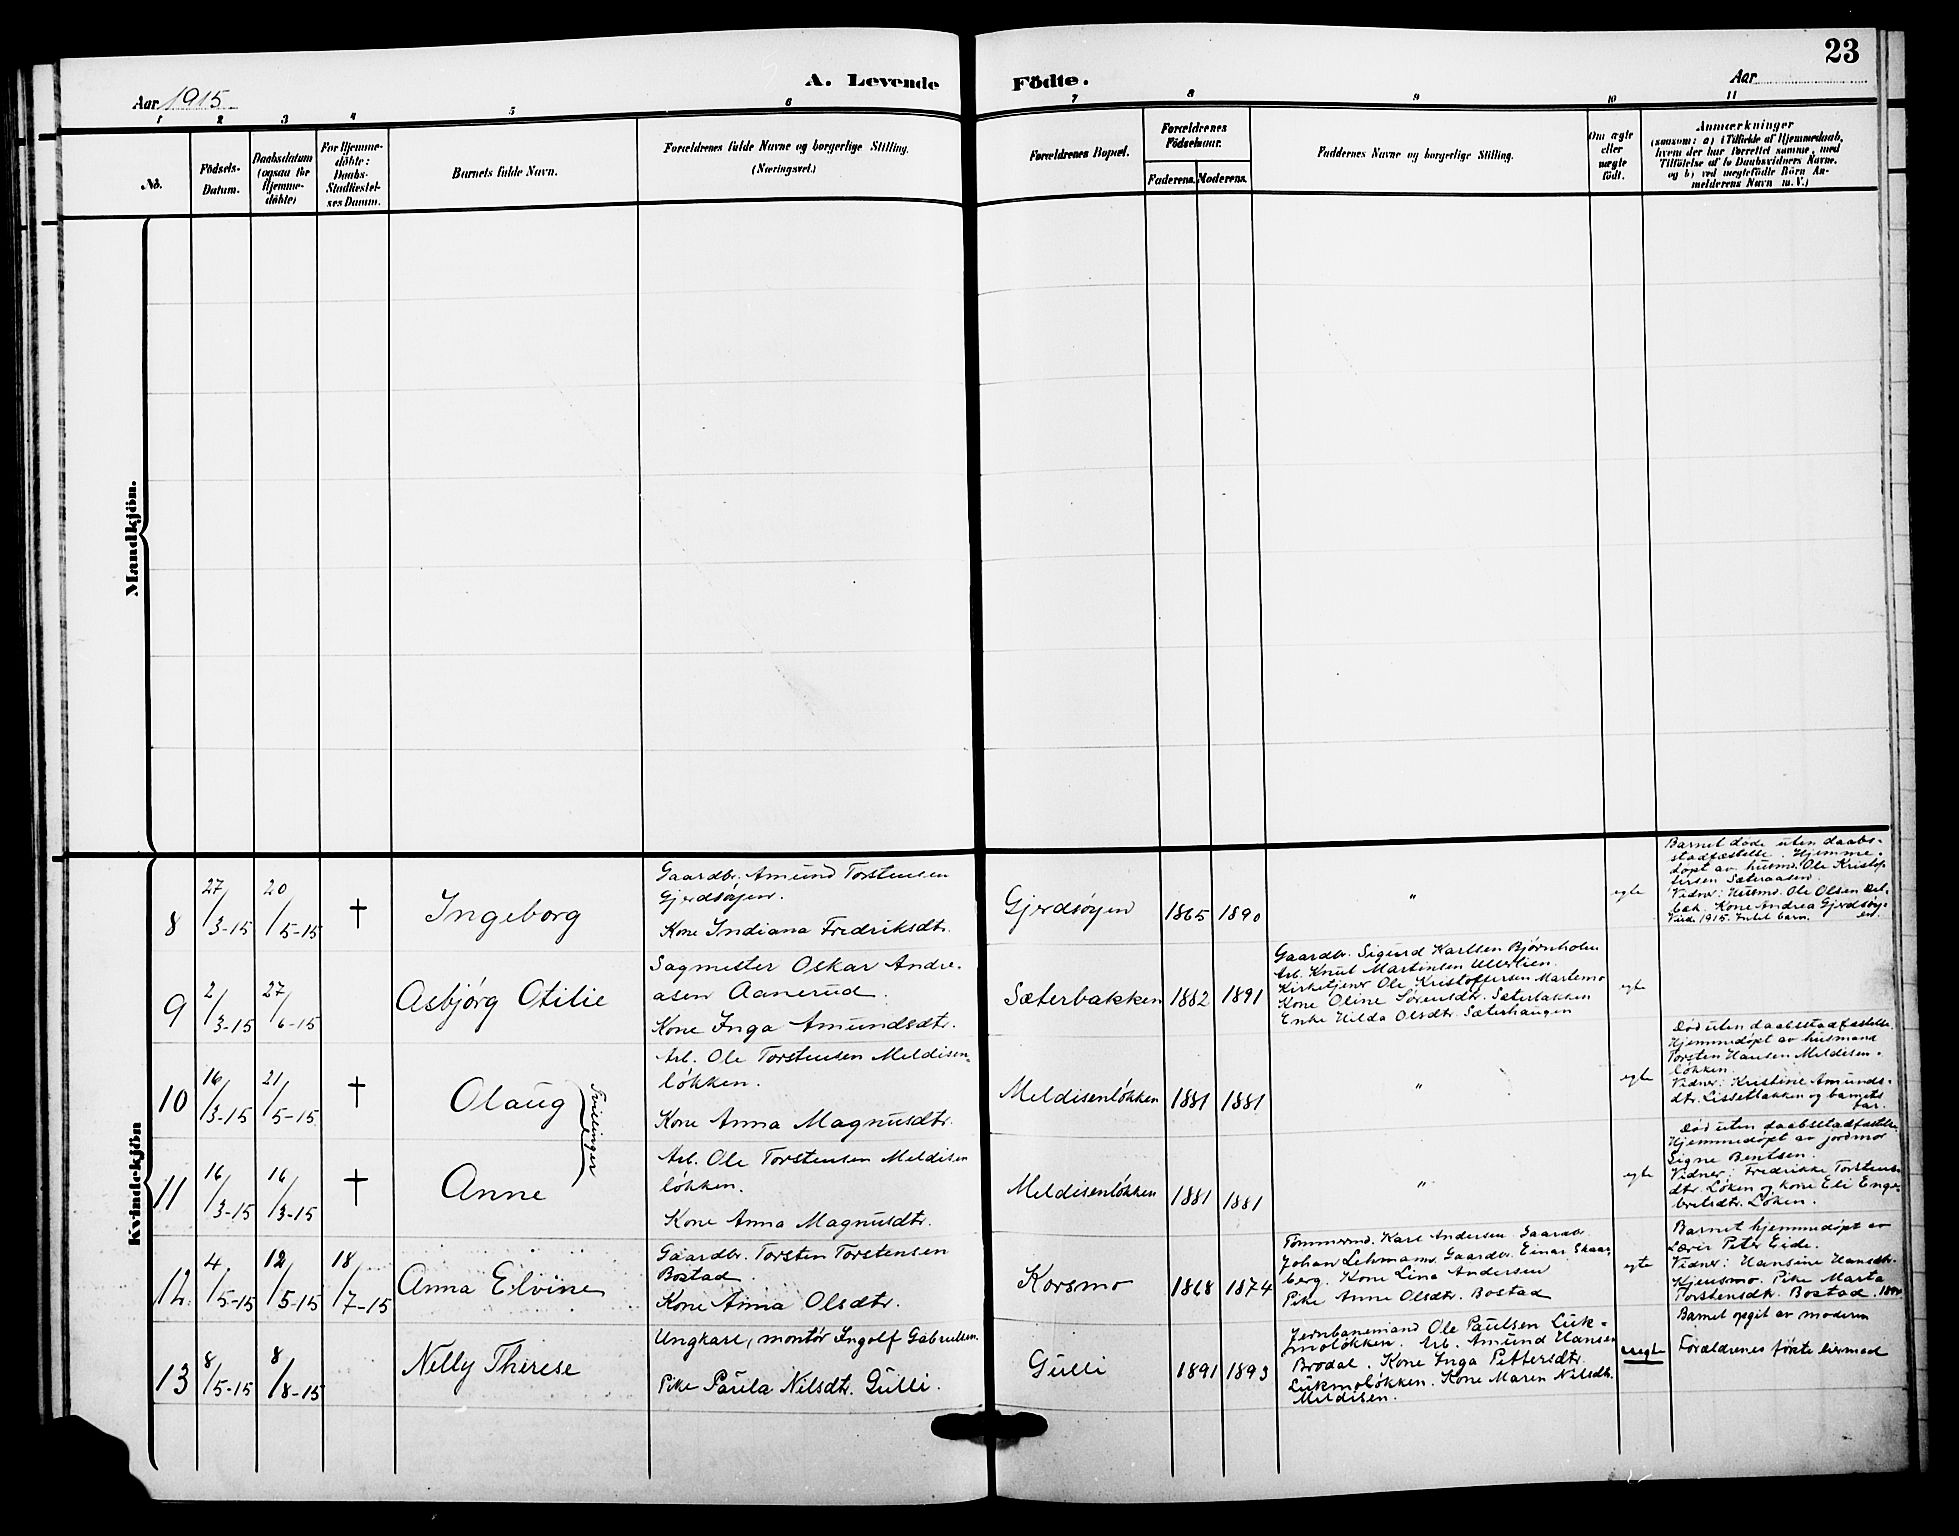 23
A. Levende Födte.
Aar 1915
Aar
1 2 3 4 5 6 7 8 9 10 11
No.
Födsels-
Datum.
Daabsdatum
(ogsaa for
Hjemme-
döbte)
For Hjemme-
döbte:
Daabs-
Stadfæstel-
ses Datum.
Barnets fulde Navn.
Forældrenes fulde Navne og borgerlige Stilling.
(Næringsvei.)
Forældrenes Bopæl.
Forældrenes
Födselsaar.
Faderens. Moderens.
Faddernes Navne og borgerlige Stilling.
Om ægte
eller
uægte
födt.
Anmærkninger
(saasom: a) i Tilfælde af Hjemmedaab,
hvem der har forrettet samme, med
Tilföielse af to Daabsvidners Navne,
og b) ved uægtefödte Börn An-
melderens Navn m. V.)
Mandkjön.
Kvindekjön
8
27/3-15
20/5-15
†
Ingeborg
Gaardbr. Amund Torstensen
Gjerdsøyen.
Kone Indiana Fredriksdtr.
Gjerdsøyen
1865
1890
"
egte
Barnet døde uten daabs-
stadfæstelse. Hjemme-
døpt av husmd. Ole Kristof-
fersen Sæteraasen.
Vidner: Husmd. Ole Olsen
bak. Kone Andrea Gjerdsøy-
en.
1915. barn.
9
2/3-15
27/6-15
Asbjørg Otilie
Sagmester Oskar Andre-
asen Aanerud.
Kone Inga Amundsdtr.
Sæterbakken
1882
1891
Gaardbr. Sigurd Karlsen Bjørnholen
Arb. Knut Martinsen Ullerlien.
Kirketjener Ole Kristoffersen Martemo
Kone Oline Sørensdtr. Sæterbakken
Enke Hilda Olsdtr. Sæterhaugen
egte
10
16/3-15
21/5-15
†
Olaug
Tvillinger
Arb. Ole Torstensen Meldisen-
løkken.
Kone Anna Magnusdtr.
Meldisenløkken
1881
1881
"
egte
Død uten daabsstadfæstelse.
Hjemmedøpt av husmand
Torsten Hansen Meldisen-
løkken.
Vidner: Kristine Amunds-
dtr. Lissetbakken og barnets
far.
11
16/3-15
16/3-15
†
Anne
Arb. Ole Torstensen Meldisen
løkken.
Kone Anna Magnusdtr.
Meldisenløkken
1881
1881
"
egte
Død uten daabsstadfæstelse
Hjemmedøpt av jordmor
Signe Bentsen.
Vidner: Fredrikke Torstens-
dtr. Løken og kone Eli Enge-
bretsdtr. Løken.
12
4/5-15
12/5-15
18/7-15
Anna Elvine
Gaardbr. Torsten Torstensen
Bostad.
Kone Anna Olsdtr.
Korsmo
1868
1874
Tømmermd. Karl Andersen. Gaardbr.
Johan Lehmann. Gaardbr. Einar Skaar-
berg. Kone Lina Andersen
Pike Anne Olsdtr. Bostad
egte
Barnet hjemmedøpt av
Lærer Peter Eide.
Vidner: Hansine Hansdtr.
Kjensmo. Pike Marta
Torstensdtr. Bostad.
13
8/5-15
8/8-15
Nelly Therese
Ungkarl, montør Ingolf Gabrielsen.
Pike Paula Nilsdtr. Gulli.
Gulli
1891
1893
Jernbanemand Ole Paulsen Luk-
moløkken. Arb. Amund Hansen
Brodal. Kone Inga Pettersdtr.
Lukmoløkken. Kone Maren Nilsdtr.
Meldisen.
uegte
Barnet opgit av moderen
Forældrenes første leiermaal